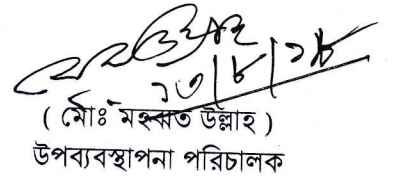 ১৩/৮/১৮
( মোঃ মহব্বত উল্লাহ )
উপব্যবস্থাপনা পরিচালক